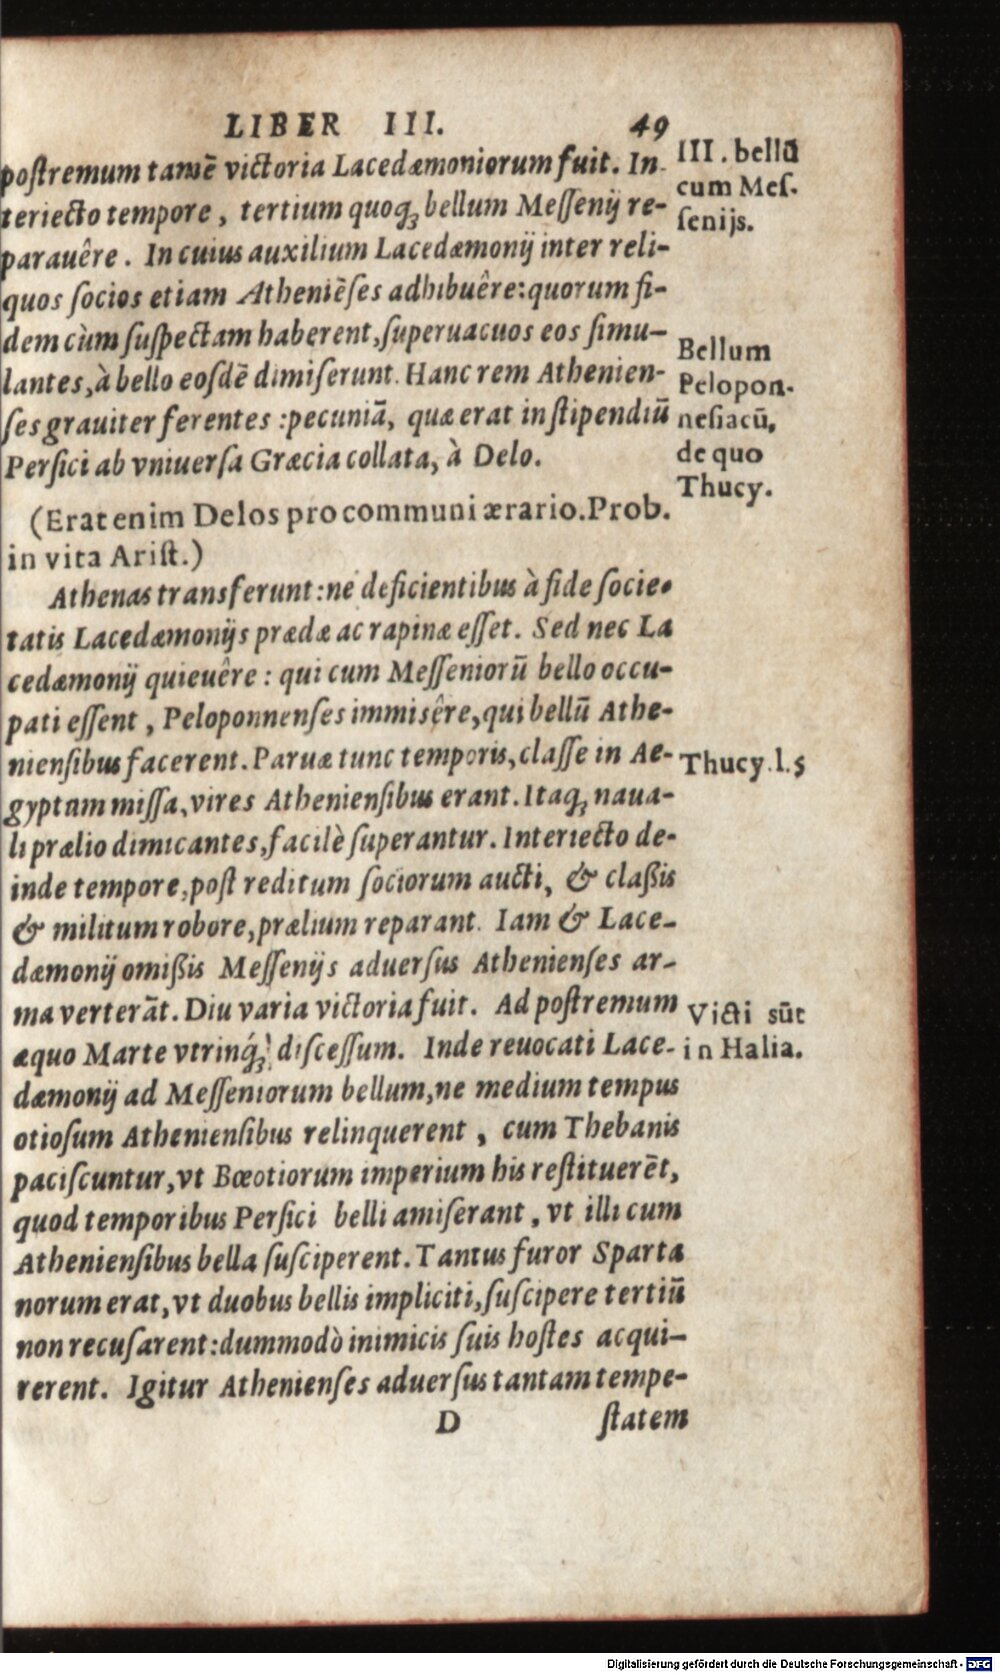 LIBER III. 49
postremum tamē victoria Lacedæmoniorum fuit. In
teriecto tempore, tertium quoq; bellum Messenij re-
parauêre. In cuius auxilium Lacedæmonij inter reli-
quos socios etiam Atheniēses adhibuêre: quorum fi-
dem cùm suspectam haberent, superuacuos eos simu-
lantes, à bello eosdē dimiserunt. Hanc rem Athenien-
ses grauiter ferentes: pecuniā, quæ erat in stipendiū
Persici ab vniuersa Græcia collata, à Delo.
(Erat enim Delos pro communi ærario. Prob.
in vita Arist.)
Athenas transferunt: ne deficientibus à fide socie-
tatis Lacedæmonijs prædæ ac rapinæ esset. Sed nec La
cedæmonij quieuêre: qui cum Messeniorū bello occu-
pati essent, Peloponnenses immisêre, qui bellū Athe-
niensibus facerent. Paruæ tunc temporis, classe in Ae-
gyptum missa, vires Atheniensibus erant. Itaq; naua-
li prælio dimicantes, facilè superantur. Interiecto de-
inde tempore, post reditum sociorum aucti, & claßis
& militum robore, prælium reparant. Iam & Lace-
dæmonij omißis Messenijs aduersus Athenienses ar-
ma verterāt. Diu varia victoria fuit. Ad postremum
æquo Marte vtrinq́; discessum. Inde reuocati Lace-
dæmonij ad Messeniorum bellum, ne medium tempus
otiosum Atheniensibus relinquerent, cum Thebanis
paciscuntur, vt Bœotiorum imperium his restituerēt,
quod temporibus Persici belli amiserant, vt illi cum
Atheniensibus bella susciperent. Tantus furor Sparta
norum erat, vt duobus bellis impliciti, suscipere tertiū
non recusarent: dummodò inimicis suis hostes acqui-
rerent. Igitur Athenienses aduersus tantam tempe-
D statem
III. bellū
cum Mes-
senijs.
Bellum
Pelopon-
nesiacū,
de quo
Thucy.
Thucy. l. 5
Victi sūt
in Halia.
Digitalisierung gefördert durch die Deutsche Forschungsgemeinschaft - DFG